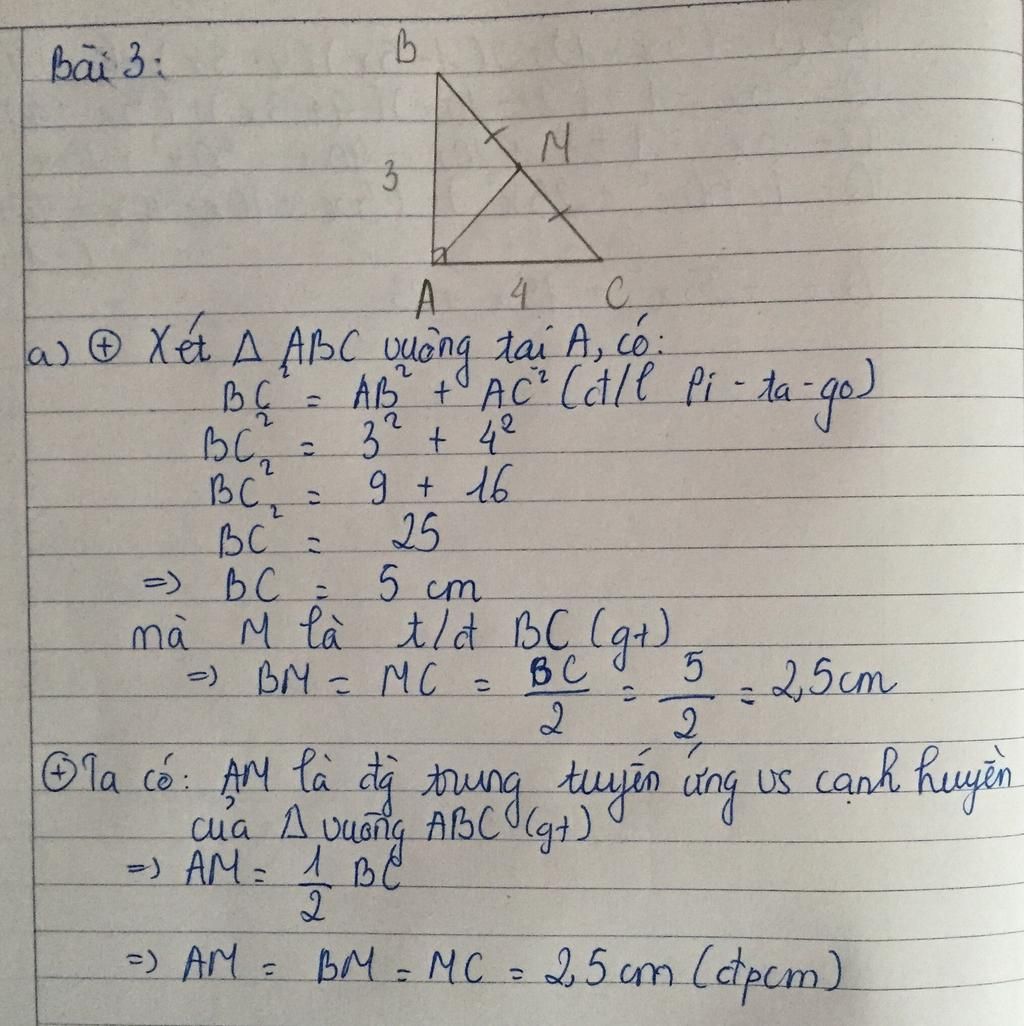 Bài 3:
B
M
3
A
4
C
a) ⊕ Xét Δ ABC vuông tại A, có:
BC² = AB² + AC² (đ/l Pi-ta-go)
BC² = 3² + 4²
BC² = 9 + 16
BC² = 25
=> BC = 5 cm
mà M là t/đ BC (gt)
=> BM = MC = BC/2 = 5/2 = 2,5cm
⊕ Ta có: AM là đg trung tuyến ứng vs cạnh huyền
của Δ vuông ABC (gt)
=> AM = 1/2 BC
=> AM = BM = MC = 2,5 cm (đpcm)